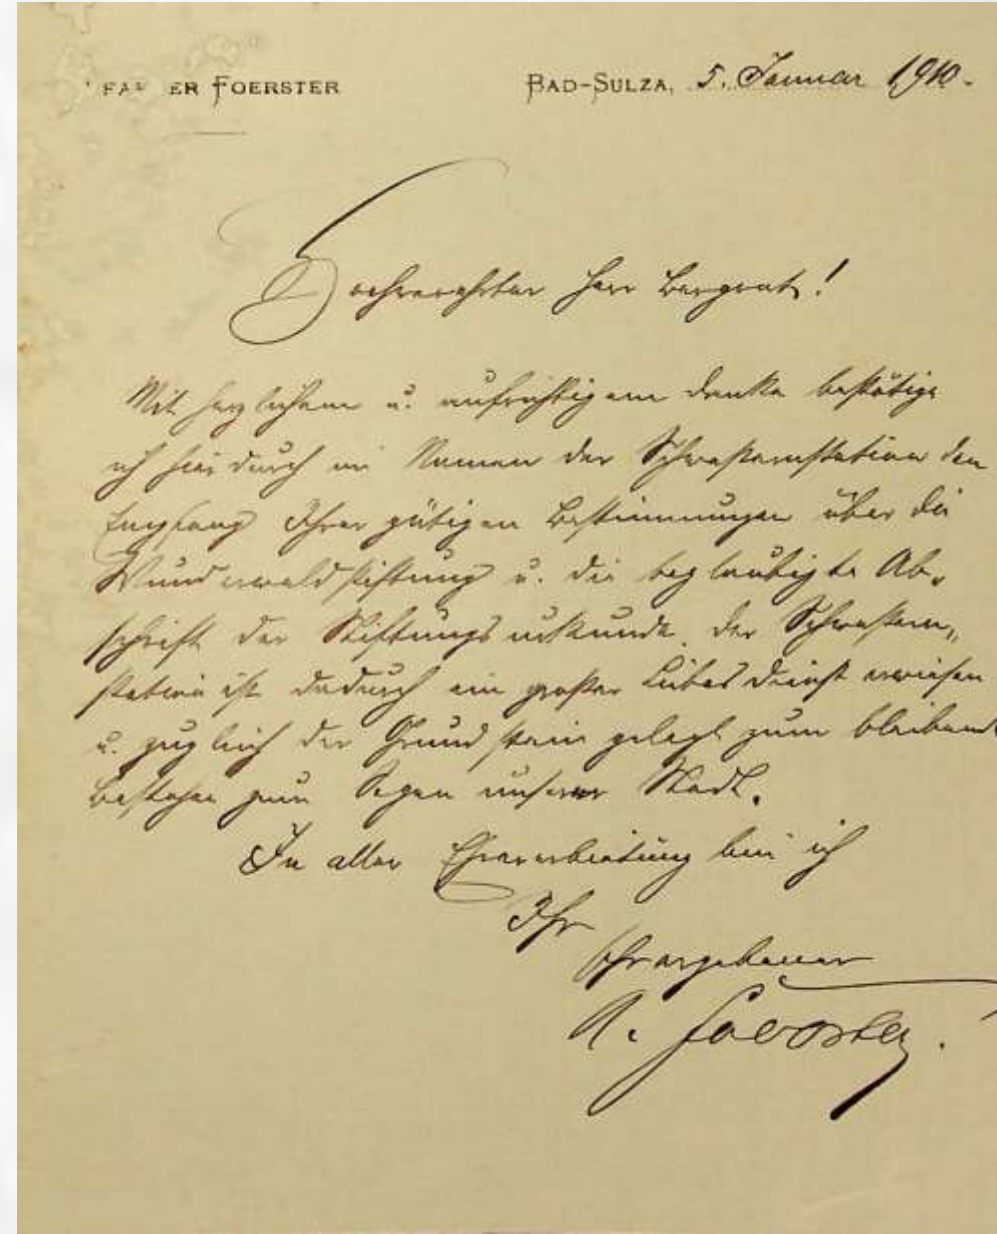 PFARRER FOERSTER BAD-SULZA, 5. Januar 1910.
Hochverehrter Herr Bergrat!
Mit herzlichem u. aufrichtigem Danke bestätige
ich hierdurch im Namen der Schwesternstation den
Empfang Ihrer gütigen Bestimmungen über die
Wunderwaldstiftung u. die beglaubigte Ab-
schrift der Stiftungsurkunde. Der Schwestern-
station ist dadurch ein großer Liebesdienst erwiesen
u. zugleich der Grundstein gelegt zum bleibend
Bestehen zum Segen unserer Stadt.
In aller Ehrerbietung bin ich
Ihr
sehr ergebener
A. Foerster.